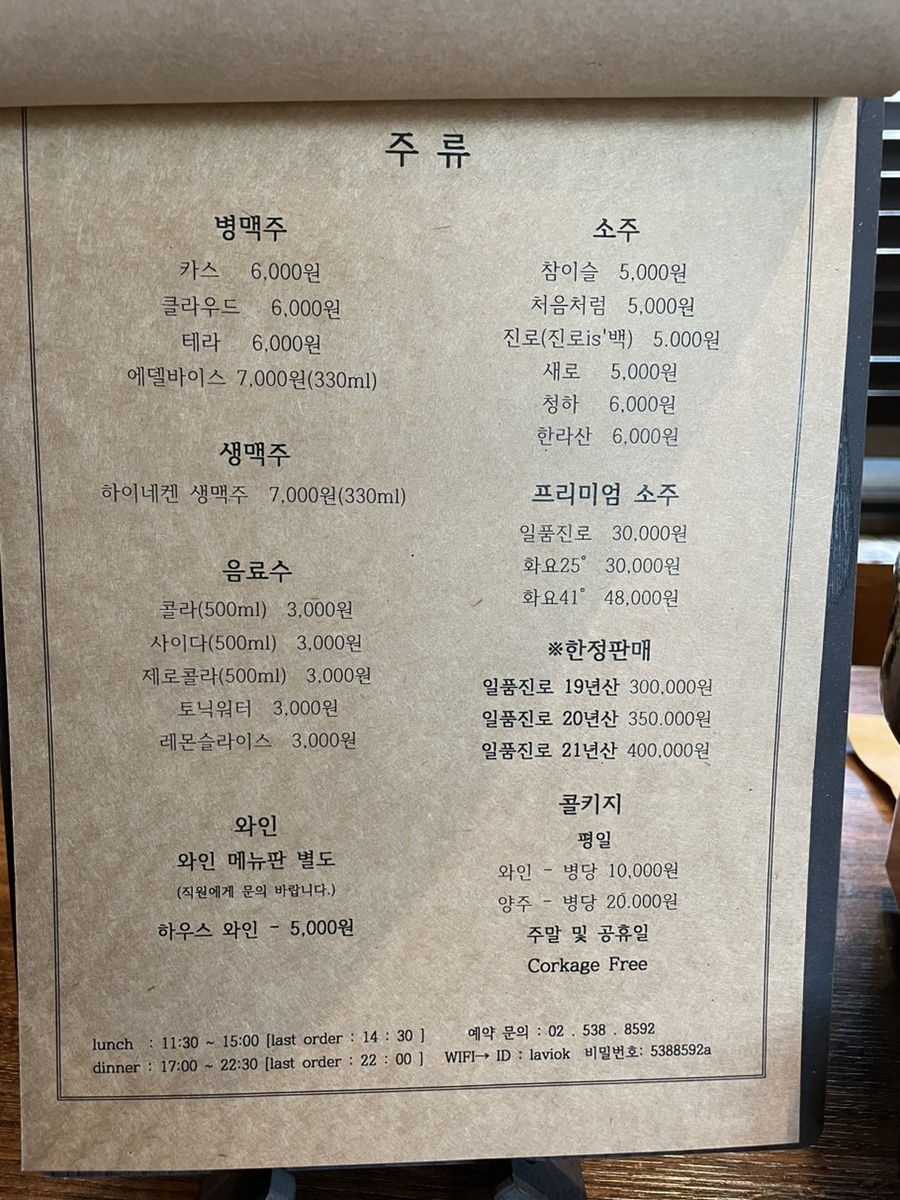 주 류
병맥주
카스 6,000원
클라우드 6,000원
테라 6,000원
에델바이스 7,000원(330ml)
생맥주
하이네켄 생맥주 7,000원(330ml)
음료수
콜라(500ml) 3,000원
사이다(500ml) 3,000원
제로콜라(500ml) 3,000원
토닉워터 3,000원
레몬슬라이스 3,000원
와인
와인 메뉴판 별도
(직원에게 문의 바랍니다.)
하우스 와인 - 5,000원
소주
참이슬 5,000원
처음처럼 5,000원
진로(진로is'백) 5.000원
새로 5,000원
청하 6,000원
한라산 6,000원
프리미엄 소주
일품진로 30,000원
화요25° 30,000원
화요41° 48,000원
※한정판매
일품진로 19년산 300,000원
일품진로 20년산 350.000원
일품진로 21년산 400,000원
콜키지
평일
와인 - 병당 10,000원
양주 - 병당 20.000원
주말 및 공휴일
Corkage Free
lunch : 11:30 ~ 15:00 [last order : 14 : 30 ]
dinner : 17:00 ~ 22:30 [last order : 22 : 00 ]
예약 문의 : 02 . 538 . 8592
WIFI→ ID : laviok 비밀번호: 5388592a